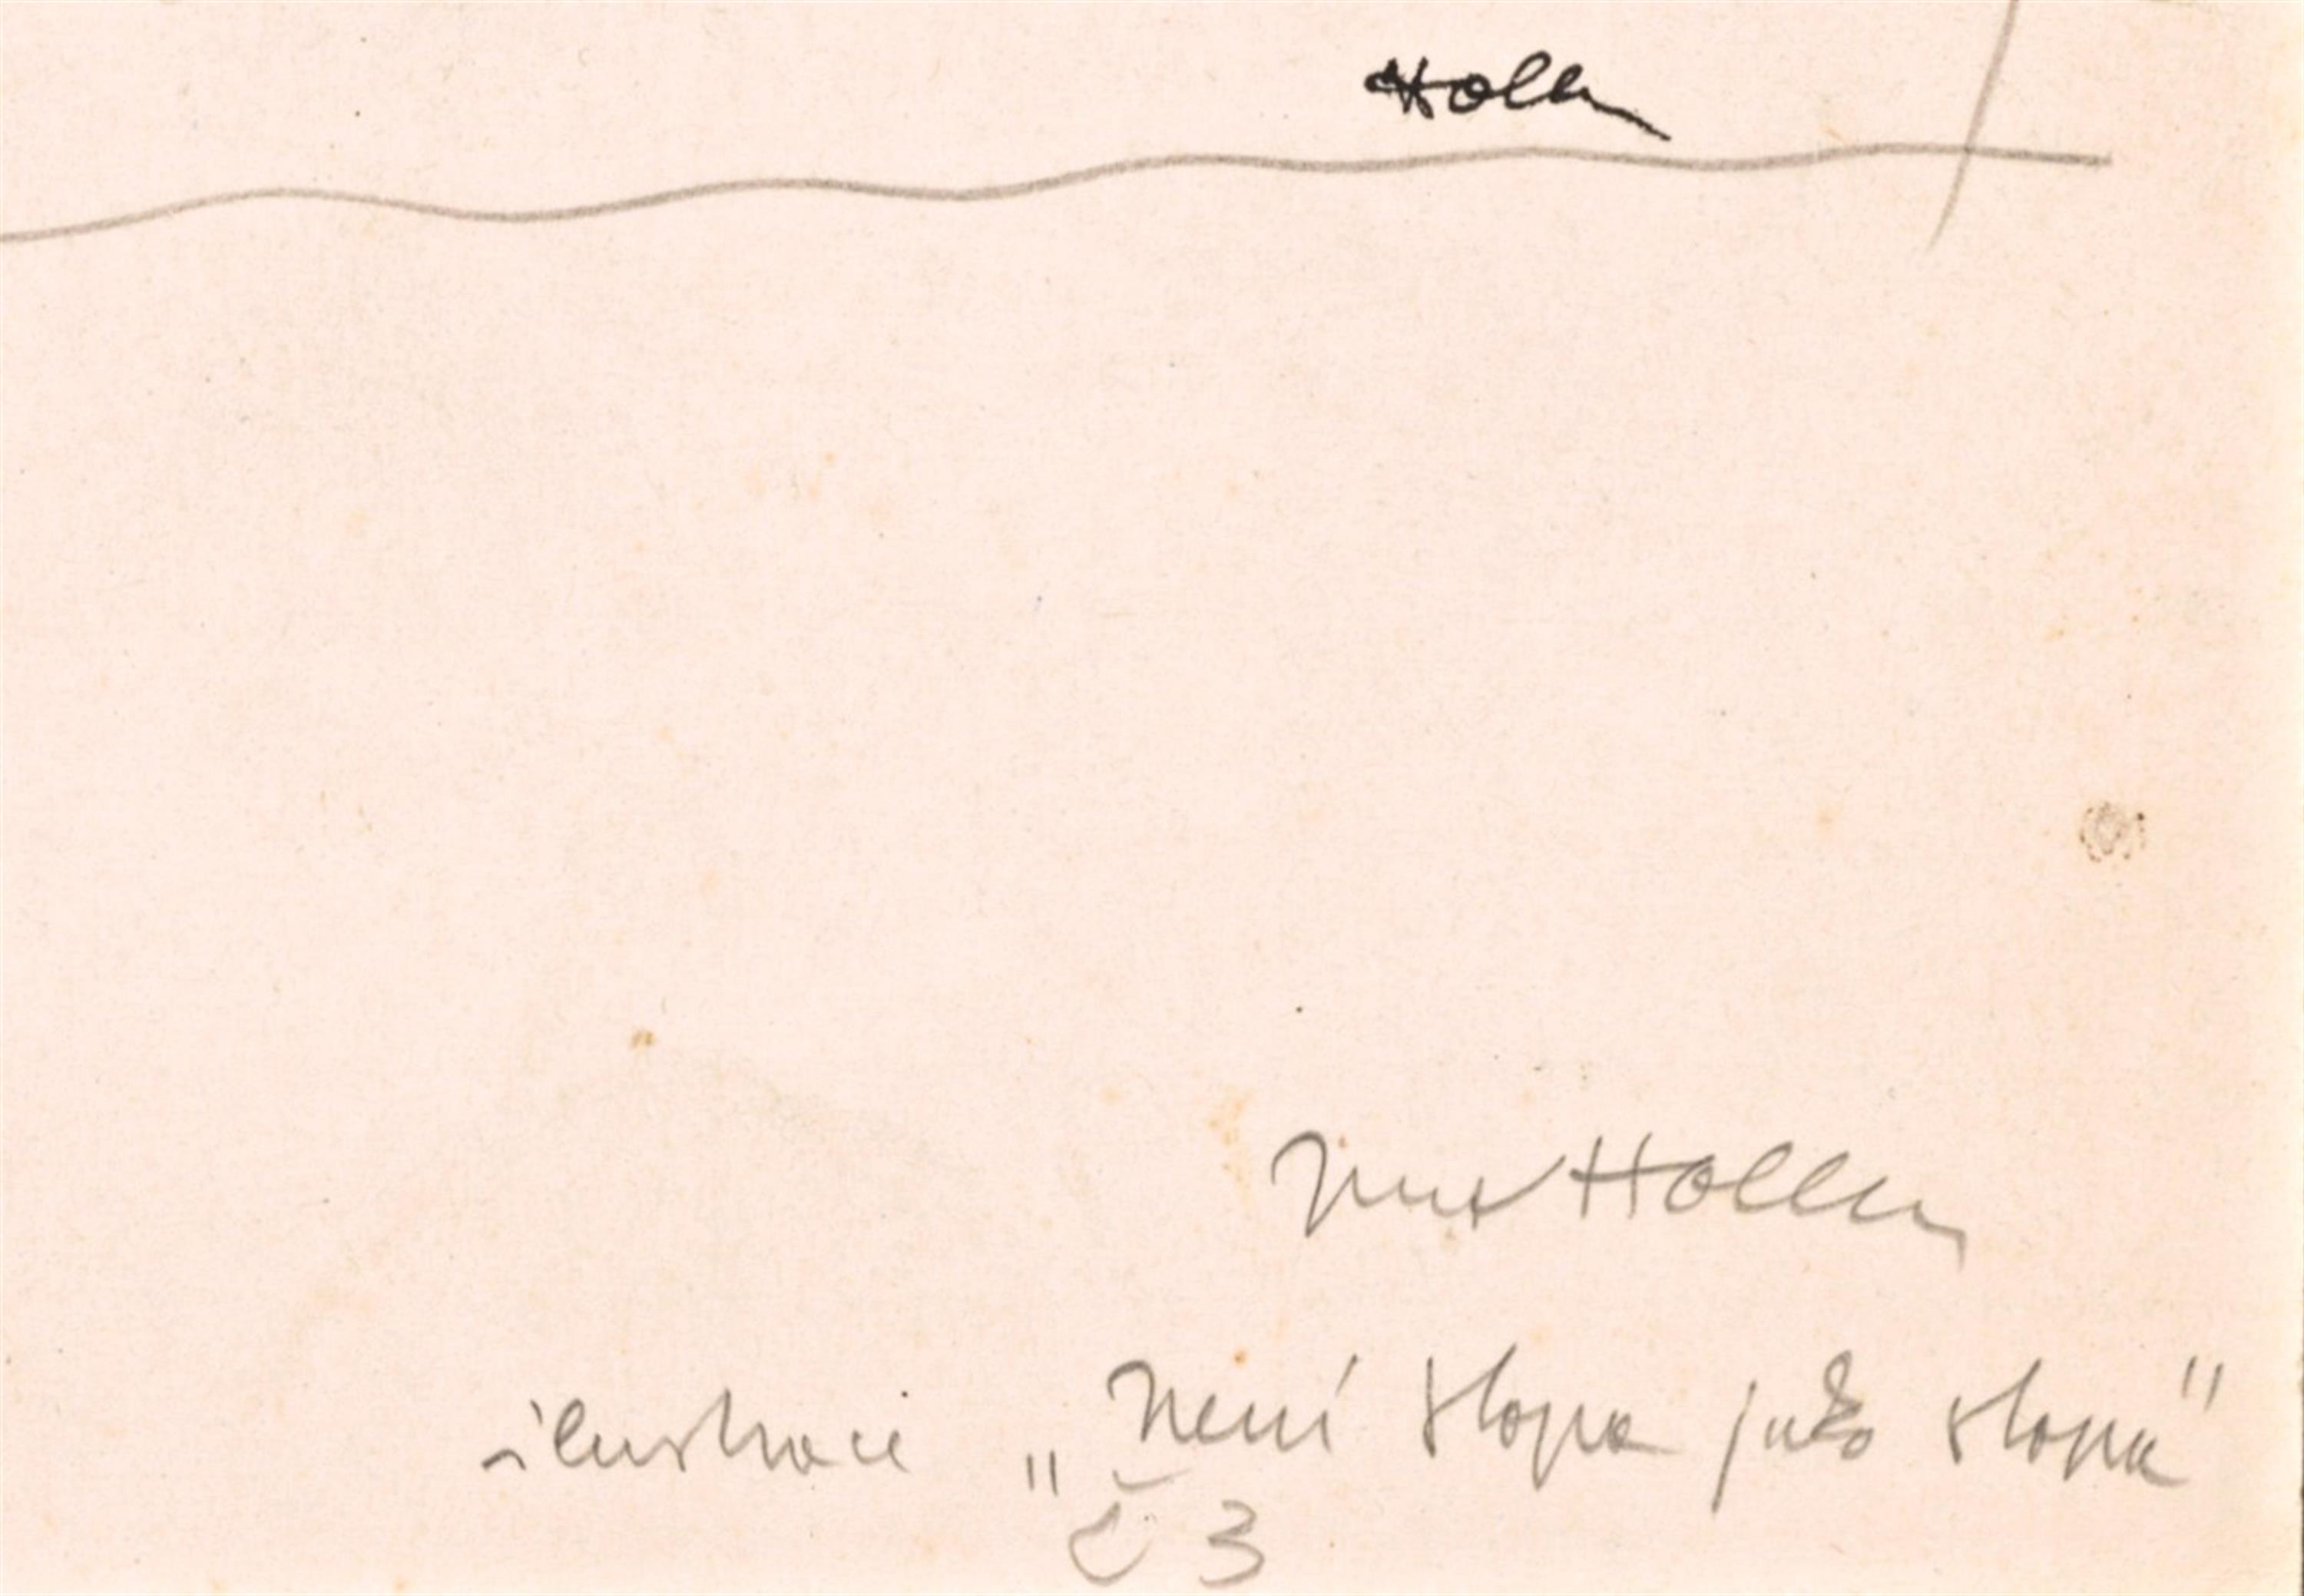 Holler
Mir Holler
ilustrace „Není stopa jako stopa"
č 3